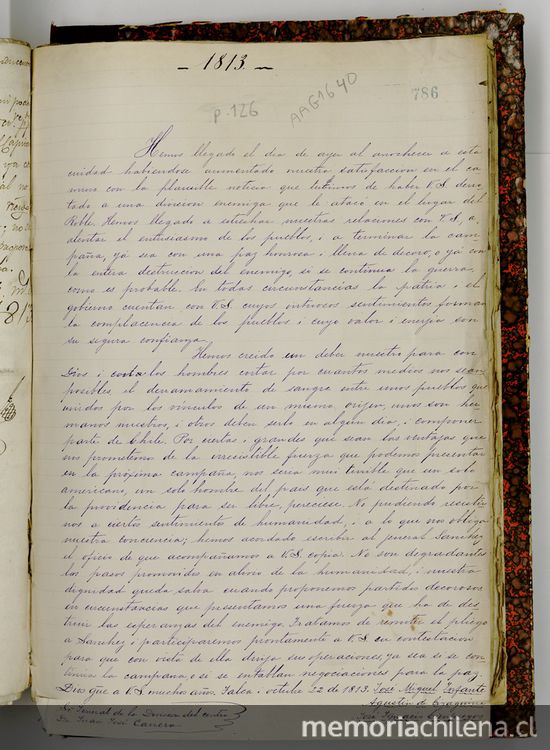 – 1813. –
786
P. 126
AAG1640
Hemos llegado el dia de ayer al anochecer a esta
ciudad habiendose aumentado nuestra satisfaccion en el ca
mino con la plausible noticia que tuvimos de haber V.S. derro
tado a una division enemiga que le atacó en el lugar del
Roble. Hemos llegado a estrechar nuestras relaciones con V.S., a
alentar el entusiasmo de los pueblos, i a terminar la cam-
paña, yá sea con una paz honrosa i llena de decoro, o yá con
la entera destruccion del enemigo, si se continúa la guerra,
como es probable. En todas circunstancias la patria i el
gobierno cuentan con V.S. cuyos virtuosos sentimientos forman
la complacencia de los pueblos i cuyo valor i energia son
su segura confianza.
Hemos creido un deber nuestro para con
Dios i los hombres cortar por cuantos medios nos sean
posibles el derramamiento de sangre entre unos pueblos que
unidos por los vinculos de un mismo origen, unos son her
manos nuestros, i otros deben serlo en algun dia, i componer
parte de Chile. Por ciertas i grandes que sean las ventajas que
nos prometemos de la irresistible fuerza que podemos presentar
en la próxima campaña, nos seria mui terrible que un solo
americano, un solo hombre del pais que está destinado por
la providencia para ser libre, pereciese. No pudiendo resistir
nos a ciertos sentimientos de humanidad, i a lo que nos obliga
nuestra conciencia; hemos acordado escribir al jeneral Sanchez
el oficio de que acompañamos a V.S. copia. No son degradantes
los pasos promovidos en alivio de la humanidad, i nuestra
dignidad queda salva cuando proponemos partidos decorosos
en circunstancias que presentamos una fuerza que ha de des
truir las esperanzas del enemigo. Tratamos de remitir el pliego
a Sanchez i participaremos prontamente a V.S. su contestacion
para que con vista de ella dirija sus operaciones, ya sea si se con
tinúa la campaña, o si se entablan negociaciones para la paz.
Dios gue a V.S. muchos años. Talca i octubre 22 de 1813. José Miguel Infante
Agustin de Eyzaguirre
José Ignacio Cienfuegos
Sr. Jeneral de la Division del centro
Dn. Juan José Carrera
memoriachilena.cl